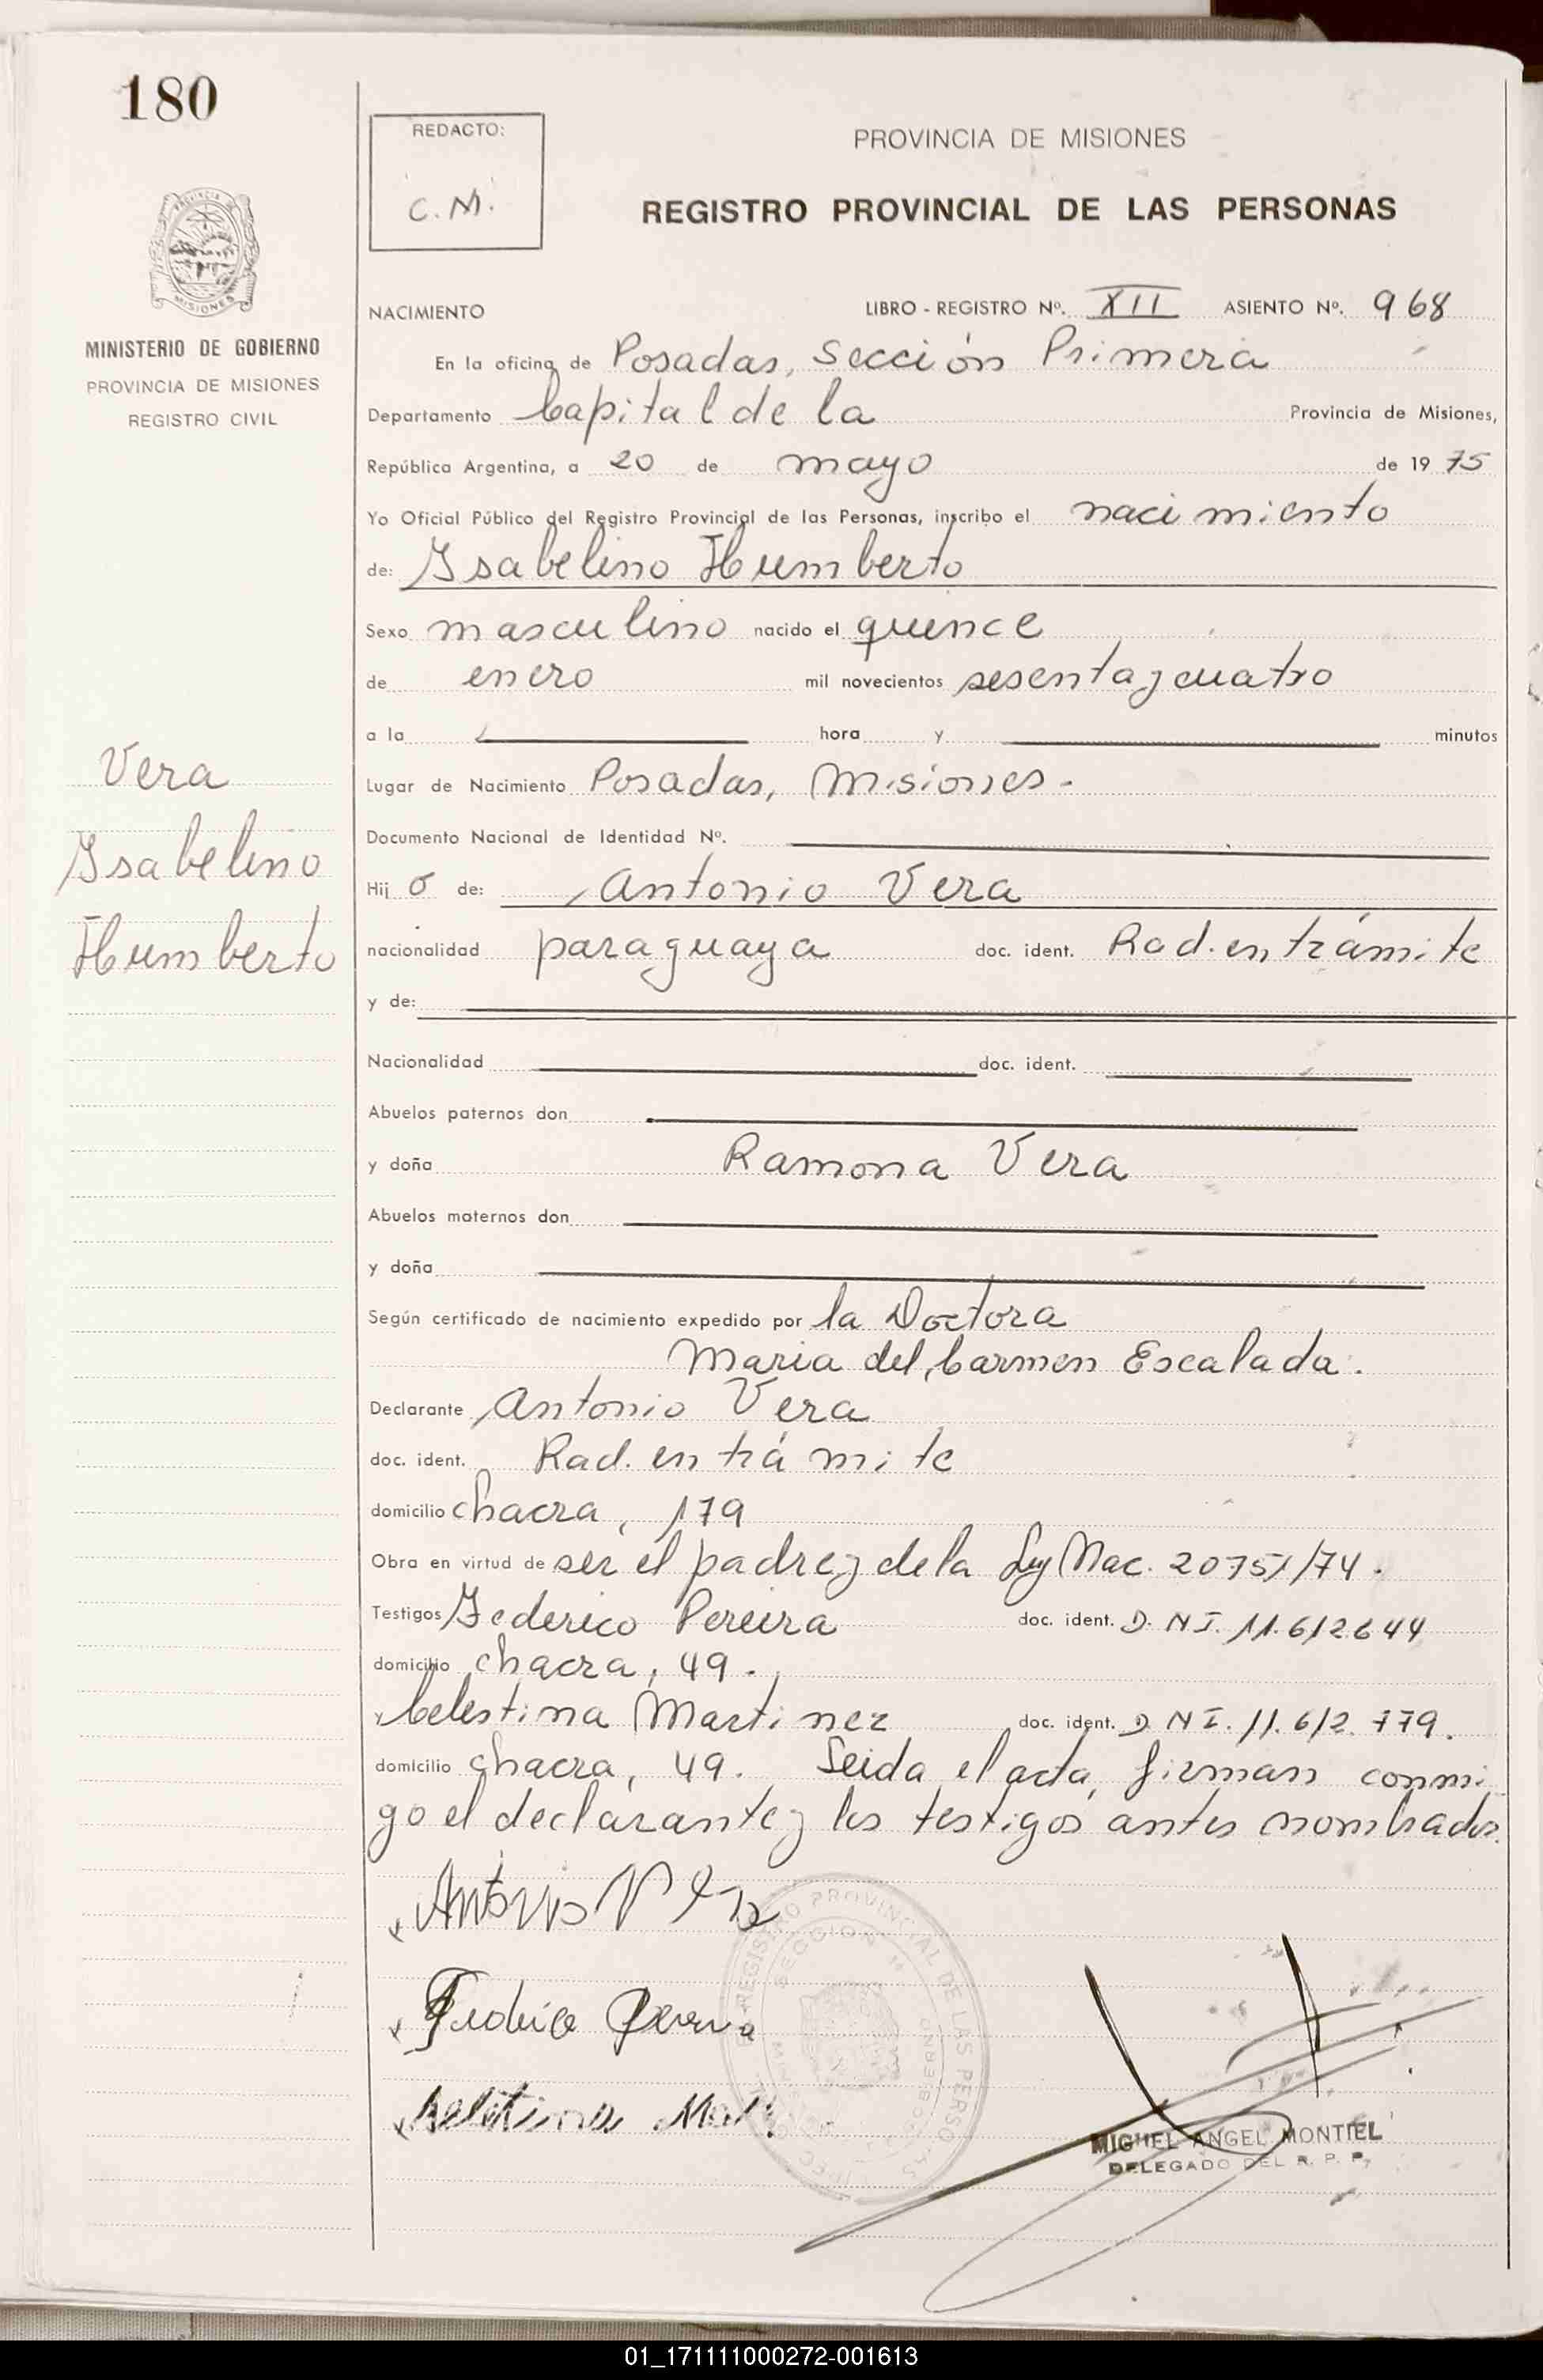 180
REDACTO:
C.M.
PROVINCIA DE MISIONES
REGISTRO PROVINCIAL DE LAS PERSONAS
MISIONES
MINISTERIO DE GOBIERNO
PROVINCIA DE MISIONES
REGISTRO CIVIL
NACIMIENTO LIBRO - REGISTRO Nº. XII ASIENTO Nº. 968
En la oficina de Posadas, Sección Primera
Departamento Capital de la Provincia de Misiones,
República Argentina, a 20 de mayo de 1975
Yo Oficial Público del Registro Provincial de las Personas, inscribo el nacimiento
de: Ysabelino Humberto
Sexo masculino nacido el quince
de enero mil novecientos sesenta y cuatro
a la hora y minutos
Vera
Lugar de Nacimiento Posadas, Misiones.
Documento Nacional de Identidad Nº.
Ysabelino
Hijo de: Antonio Vera
Humberto
nacionalidad paraguaya doc. ident. Rad. en trámite
y de:
Nacionalidad doc. ident.
Abuelos paternos don
y doña Ramona Vera
Abuelos maternos don
y doña
Según certificado de nacimiento expedido por la Doctora
Maria del Carmen Escalada.
Declarante Antonio Vera
doc. ident. Rad. en trámite
domicilio chacra, 179
Obra en virtud de ser el padre y de la Ley Nac. 20751/74.
Testigos Federico Pereira doc. ident. D.N.I. 11.612.644
domicilio chacra, 49.
y Celestina Martinez doc. ident. D.N.I. 11.612.779.
domicilio chacra, 49. Leida el acta, firman conmi
go el declarante y los testigos antes nombrados.
Antonio Vera
REGISTRO PROVINCIAL DE LAS PERSONAS
SECCION 1ª
MIGUEL ANGEL MONTIEL
DELEGADO DEL R. P. P.
01_171111000272-001613